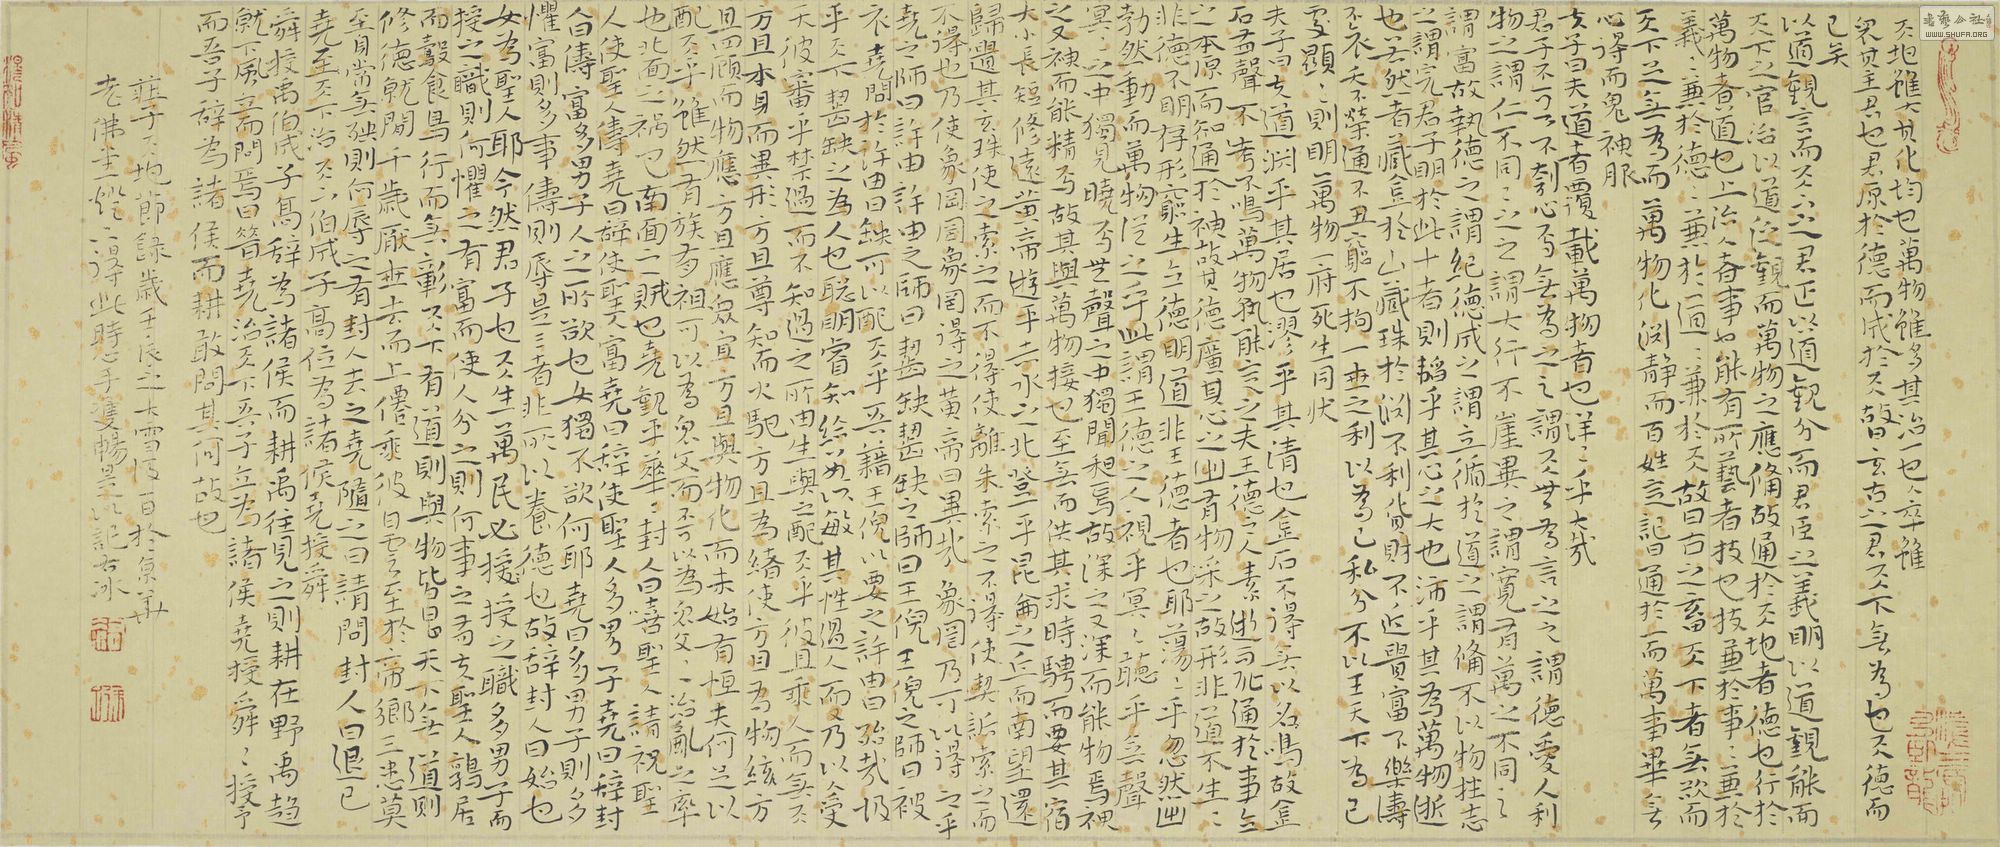 天地雖大其化均也萬物雖多其治一也人卒雖
眾其主君也君原於德而成於天故曰玄古之君天下無為也天德而
已矣
以道觀言而天下之君正以道觀分而君臣之義明以道觀能而
天下之官治以道汎觀而萬物之應備故通於天地者德也行於
萬物者道也上治人者事也能有所藝者技也技兼於事〻兼於
義〻兼於德〻兼於道〻兼於天故曰古之畜天下者無欲而
天下足無為而萬物化淵靜而百姓定記曰通於一而萬事畢無
心得而鬼神服
夫子曰夫道者覆載萬物者也洋〻乎大哉
君子不可不刳心焉無為為之之謂天無為言之之謂德愛人利
物之謂仁不同〻之之謂大行不崖異之謂寬有萬不同之
謂富故執德之謂紀德成之謂立循於道之謂備不以物挫志
之謂完君子明於此十者則韜乎其心之大也沛乎其為萬物逝
也若然者藏金於山藏珠於淵不利貨財不近貴富不樂壽
不哀夭不榮通不丑窮不拘一世之利以為己私分不以王天下為己
處顯〻則明萬物一府死生同狀
夫子曰夫道淵乎其居也漻乎其清也金石不得無以鳴故金
石有聲不考不鳴萬物孰能定之夫王德之人素逝而恥通於事立
之本原而知通於神故其德廣其心之出有物採之故形非道不生〻
非德不明存形窮生立德明道非王德者也耶蕩〻乎忽然出
勃然動而萬物從之乎此謂王德之人視乎冥〻聽乎無聲
冥〻之中獨見曉焉無聲之中獨聞和焉故深之又深而能物焉神
之又神而能精焉故其與萬物接也至無而供其求時騁而要其宿
大小長短修遠黃帝遊乎赤水之北登乎昆侖之丘而南望還
歸遺其玄珠使知索之而不得使離朱索之不得使契詬索之而
不得也乃使象罔象罔得之黃帝曰異哉象罔乃可以得之乎
堯之師曰許由許由之師曰齧缺齧缺之師曰王倪王倪之師曰被
衣堯問於許由曰缺可以配天乎吾藉王倪以要之許由曰殆哉圾
乎天下齧缺之為人也聰明睿知給數以敏其性過人而又乃以人受
天彼審乎禁過而不知過之所由生與之配天乎彼且乘人而無天
方且本身而異形方且尊知而火馳方且為緒使方且為物絃方
且四顧而物應方且應眾宜方且與物化而未始有恆夫何足以
配天乎雖然有族有祖可以為眾父而不可以為眾父〻治亂之率
也北面之禍也南面之賊也堯觀乎華〻封人曰嘻聖人請祝聖
人使聖人壽堯曰辭使聖人富堯曰辭使聖人多男子堯曰辭封
人曰壽富多男子人之所欲也女獨不欲何耶堯曰多男子則多
懼富則多事壽則多辱是三者非所以養德也故辭封人曰始也
女為聖人耶今然君子也天生萬民必授之職多男子而
授之職則何懼之有富而使人分之則何事之有夫聖人鶉居
而鷇食鳥行而無彰天下有道則與物皆昌天下無道則
修德就閒千歲厭世去而上僊乘彼白雲至於帝鄉三患莫
至身常無殃則何辱之有封人去之堯隨之曰請問封人曰退已
堯至天下治天下伯成子高位為諸侯堯授舜
舜授禹伯成子高辭為諸侯而耕禹往見之則耕在野禹趨
就下風立而問焉曰昔堯治天下吾子立為諸侯堯授舜〻授予
而吾子辭為諸侯而耕敢問其何故也
莊子天地節錄歲壬辰之大雪後百於京華